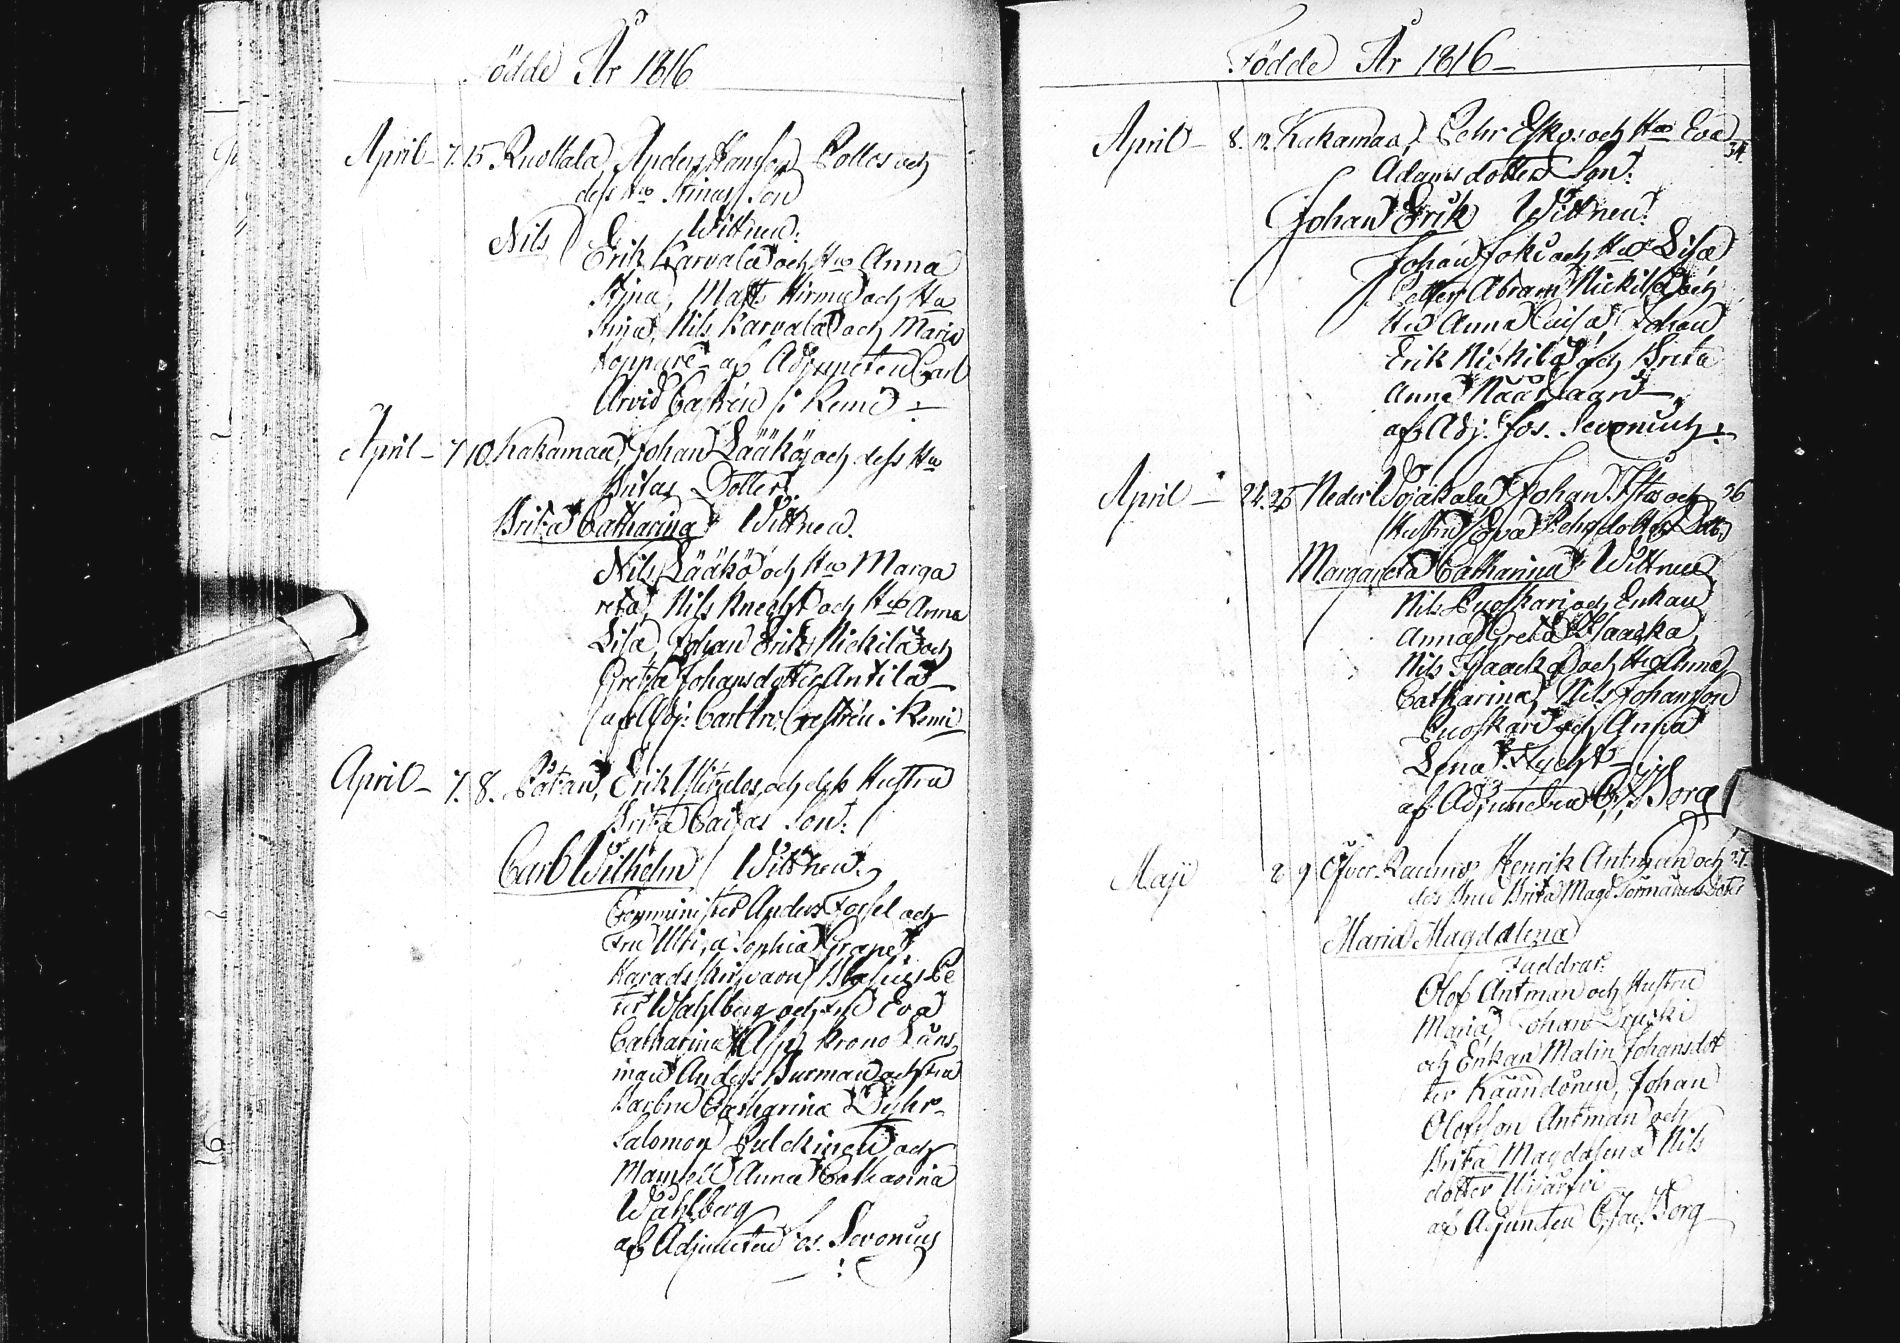 Födde År 1816
April - 7. 15. Ruottala, Anders Hansson Pottos och
dess Ho Stinas Son
Nils Wittnen:
Erik Karvala och Ho Anna
Stina, Matts Hirmu och Ho
Stina, Nils Karvala och Maria
af Adjuncten Carl
Arvid Castrén i Kemi
April - 7 10. Kakamaa, Johan Lääkös och dess Ho
Britas Dotter.
Brita Catharina Wittnen.
Nils Lääkö och Ho Marga
reta, Nils Knecht och Ho Anna
Lisa, Johan Erik Nickilä och
Greta Johansdotter Antila
af Adj: Carl Arv. Castrén i Kemi
April - 7. 8. Erik och dess Hustru
Brita Caisas Son:
Carl Wilhelm Wittnen.
Comminister Anders Forssel och
Fru Ulrica Sophia Grape,
Häradsskrifvaren Blasius Pe
ter Wahlberg och Fru Eva
Catharina Alp, Krono Läns
man Anders Burman och Fru
Catharina Dyhr
Salomon Pulckinen och
Mamsell Anna Catharina
Wahlberg
af Adjuncten Jos. Sevonius
Födde År 1816 -
April - 8. 12. Kakamaa, Pehr Eskos och Ho Eva
34.
Adamsdotters Son:
Johan Erik Wittnen:
Johan Joki och Ho Lisa
Petter Abram Nickilä och
Ho Anna Caisa, Johan
Erik Nickilä och Brita
Anna
af Adj. Jos. Sevonius:
April - 24. 25 Neder Wojakala Johan och 36
Hustru Eva Pehrsdotters Dotter
Margareta Catharina Wittnen
Nils Puoskari och Enkan
Anna Greta Isaacka,
Nils Isaacka och Ho Anna
Catharina, Nils Johansson
Puoskari och Anna
Lena Flycht -
af Adjuncten C. J. Borg
Maji 2 9 Öfver Raumo Henrik Antman och 37.
des Hru Brita Magd. Dotter
Maria Magdalena
Faddrar:
Olof Antman och Hustru
Maria, Johan
och Enkan Malin Johansdot
ter Johan
Olofsson Antman och
Brita Magdalena Nils
dotter
af Adjuncten C. Jac. Borg